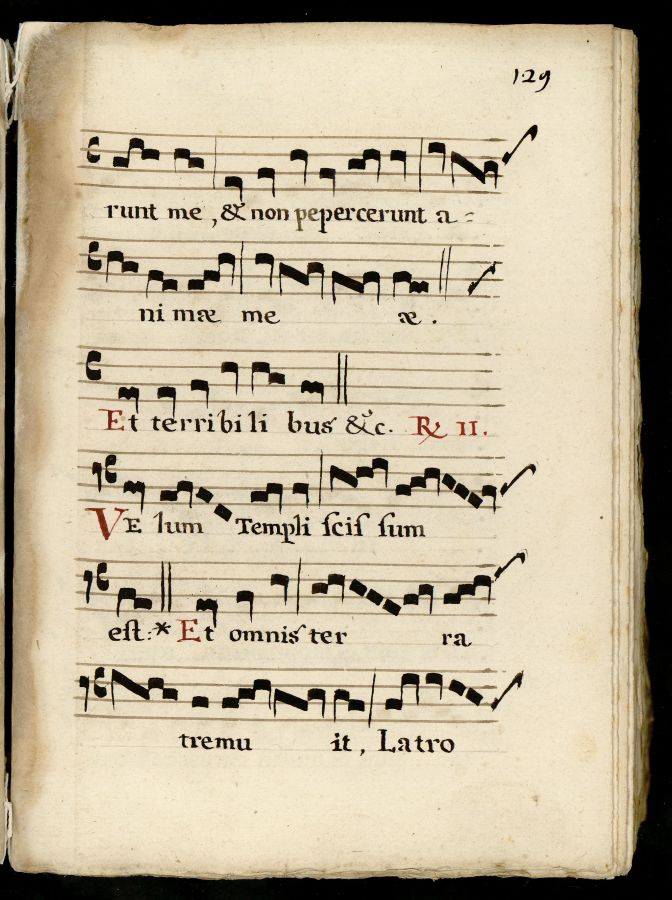 129
runt me, & non pepercerunt a-
ni mæ me æ.
Et terribili bus &c. ℞ II.
VE lum Templi scis sum
est: * Et omnis ter ra
tremu it, Latro